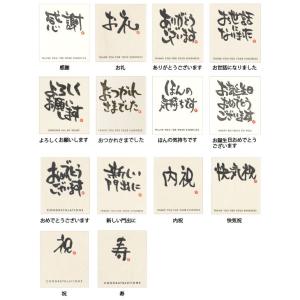 感謝
THANK YOU FOR YOUR KINDNESS
感謝
お礼
THANK YOU FOR YOUR KINDNESS
お礼
ありがとう
ございます
THANK YOU FOR YOUR KINDNESS
ありがとうございます
お世話に
なりました
THANK YOU FOR YOUR KINDNESS
お世話になりました
よろしく
お願い
します
よろしくお願いします
おつかれ
さまでした
THANK YOU FOR YOUR KINDNESS
おつかれさまでした
ほんの
気持ちです
THANK YOU FOR YOUR KINDNESS
ほんの気持ちです
お誕生日
おめでとう
ございます
お誕生日おめでとう
ございます
おめでとう
ござい
ます
CONGRATULATIONS
おめでとうございます
新しい
門出に
新しい門出に
内祝
内祝
快気祝
快気祝
祝
CONGRATULATIONS
祝
寿
CONGRATULATIONS
寿